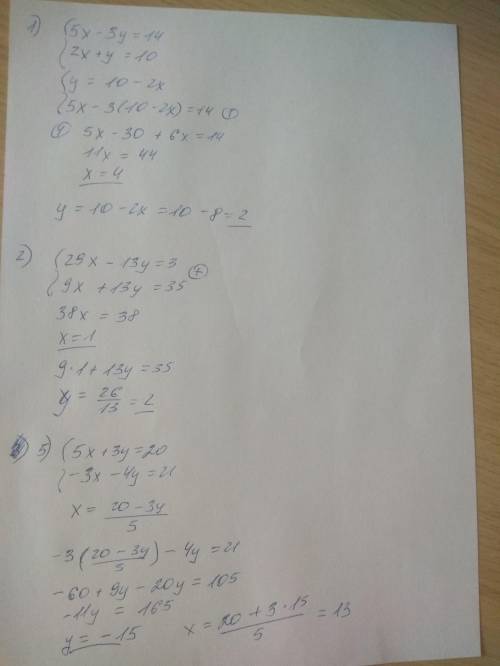 1) { 5x - 3y = 14
2x + y = 10
{ y = 10 - 2x
5x - 3(10 - 2x) = 14 ①
① 5x - 30 + 6x = 14
11x = 44
x = 4
y = 10 - 2x = 10 - 8 = 2
2) { 29x - 13y = 3
9x + 13y = 35 (+)
38x = 38
x = 1
9·1 + 13y = 35
y = 26/13 = 2
5) { 5x + 3y = 20
-3x - 4y = 21
x = (20 - 3y)/5
-3((20 - 3y)/5) - 4y = 21
-60 + 9y - 20y = 105
-11y = 165
y = -15 x = (20 + 3·15)/5 = 13